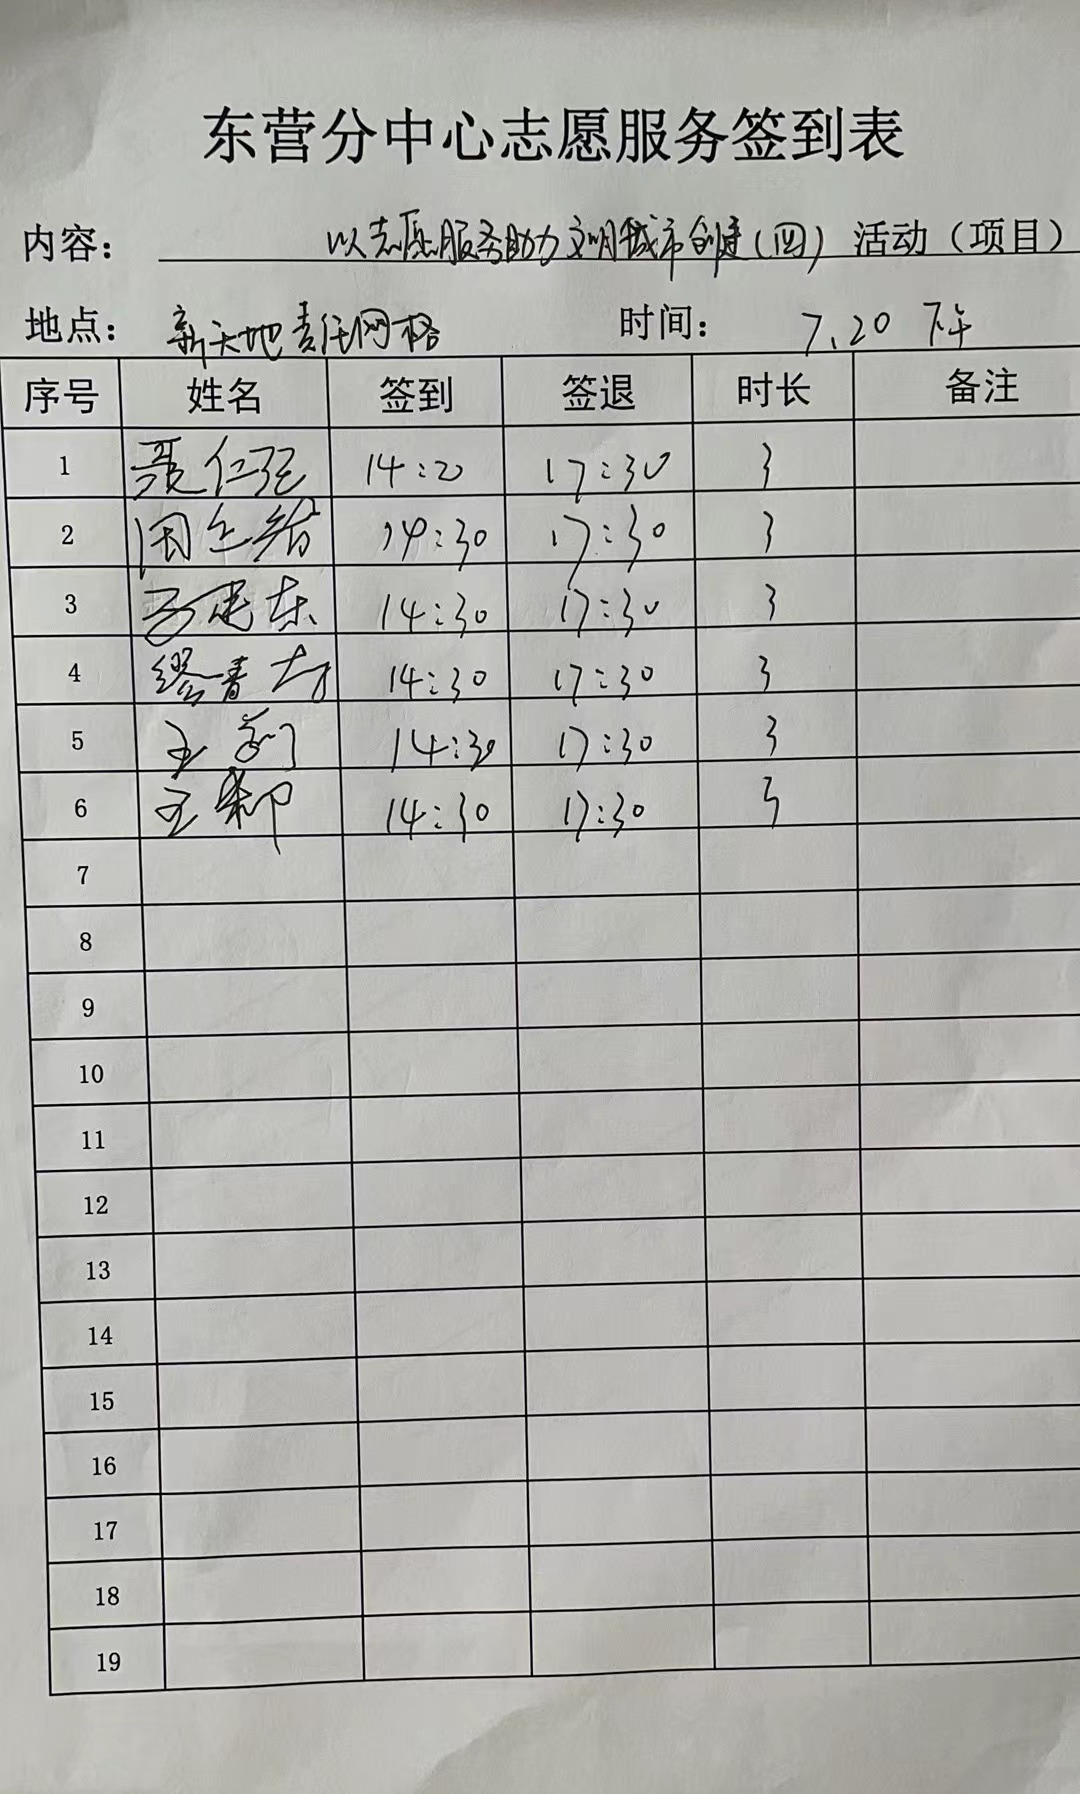 东营分中心志愿服务签到表
内容: 以志愿服务助力文明城市创建(四) 活动(项目)
地点: 新天地责任网格 时间: 7.20 下午
序号 姓名 签到 签退 时长 备注
1 聂仁 14:20 17:30 3
2 周 14:30 17:30 3
3 马建东 14:30 17:30 3
4 缪青 14:30 17:30 3
5 王莉 14:30 17:30 3
6 王 14:30 17:30 3
7
8
9
10
11
12
13
14
15
16
17
18
19